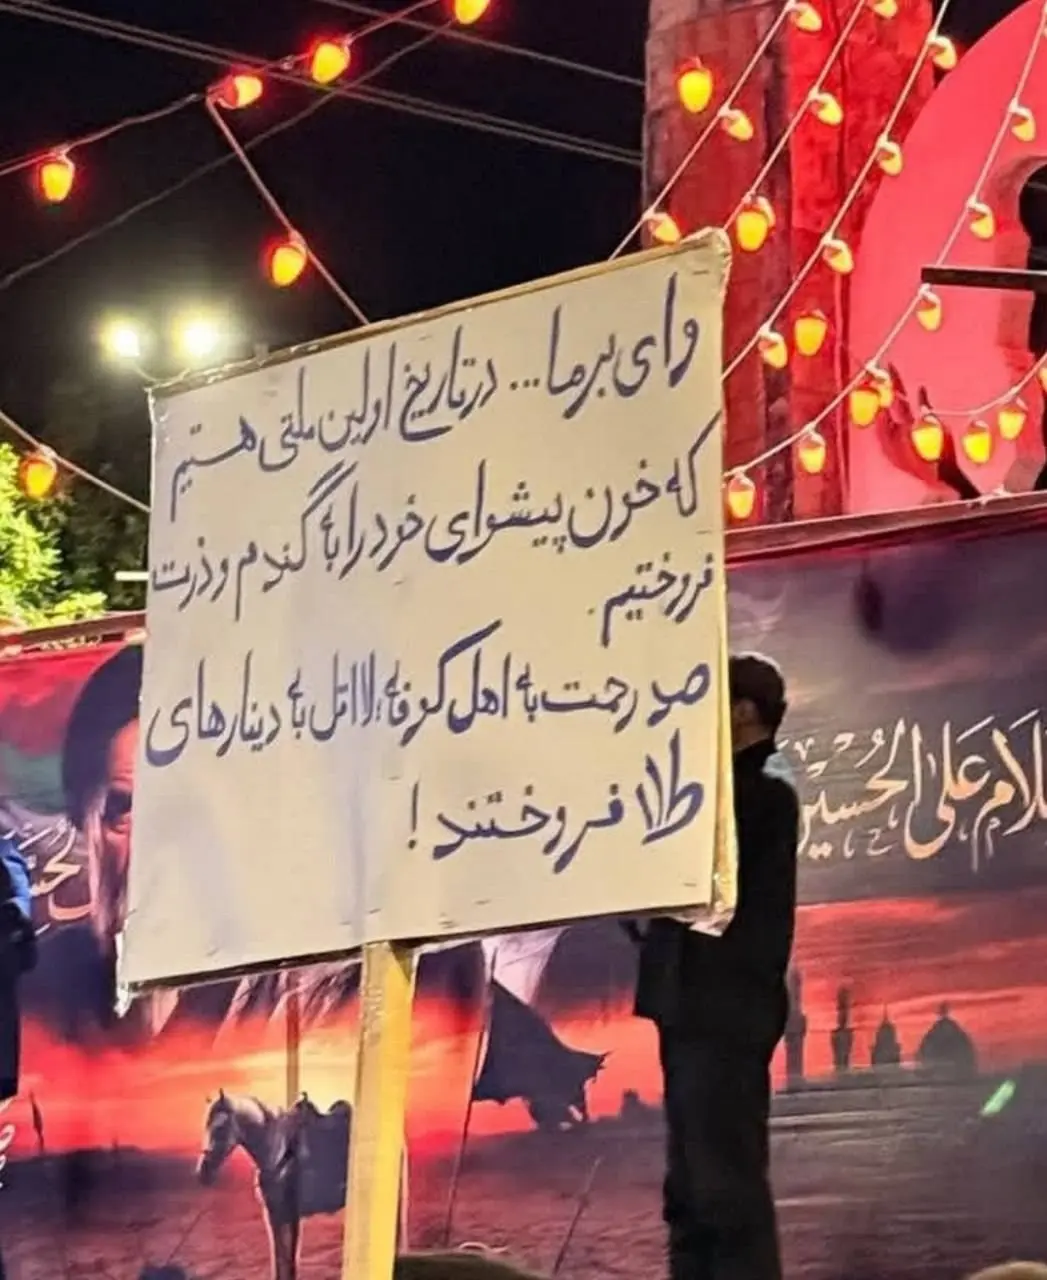 وای بر ما... در تاریخ اولین ملتی هستیم
که خون پیشوای خود را به گندم و ذرت
فروختیم.
صد رحمت به اهل کوفه، لااقل به دینارهای
طلا فروختند!
لام علی الحسین
الحس